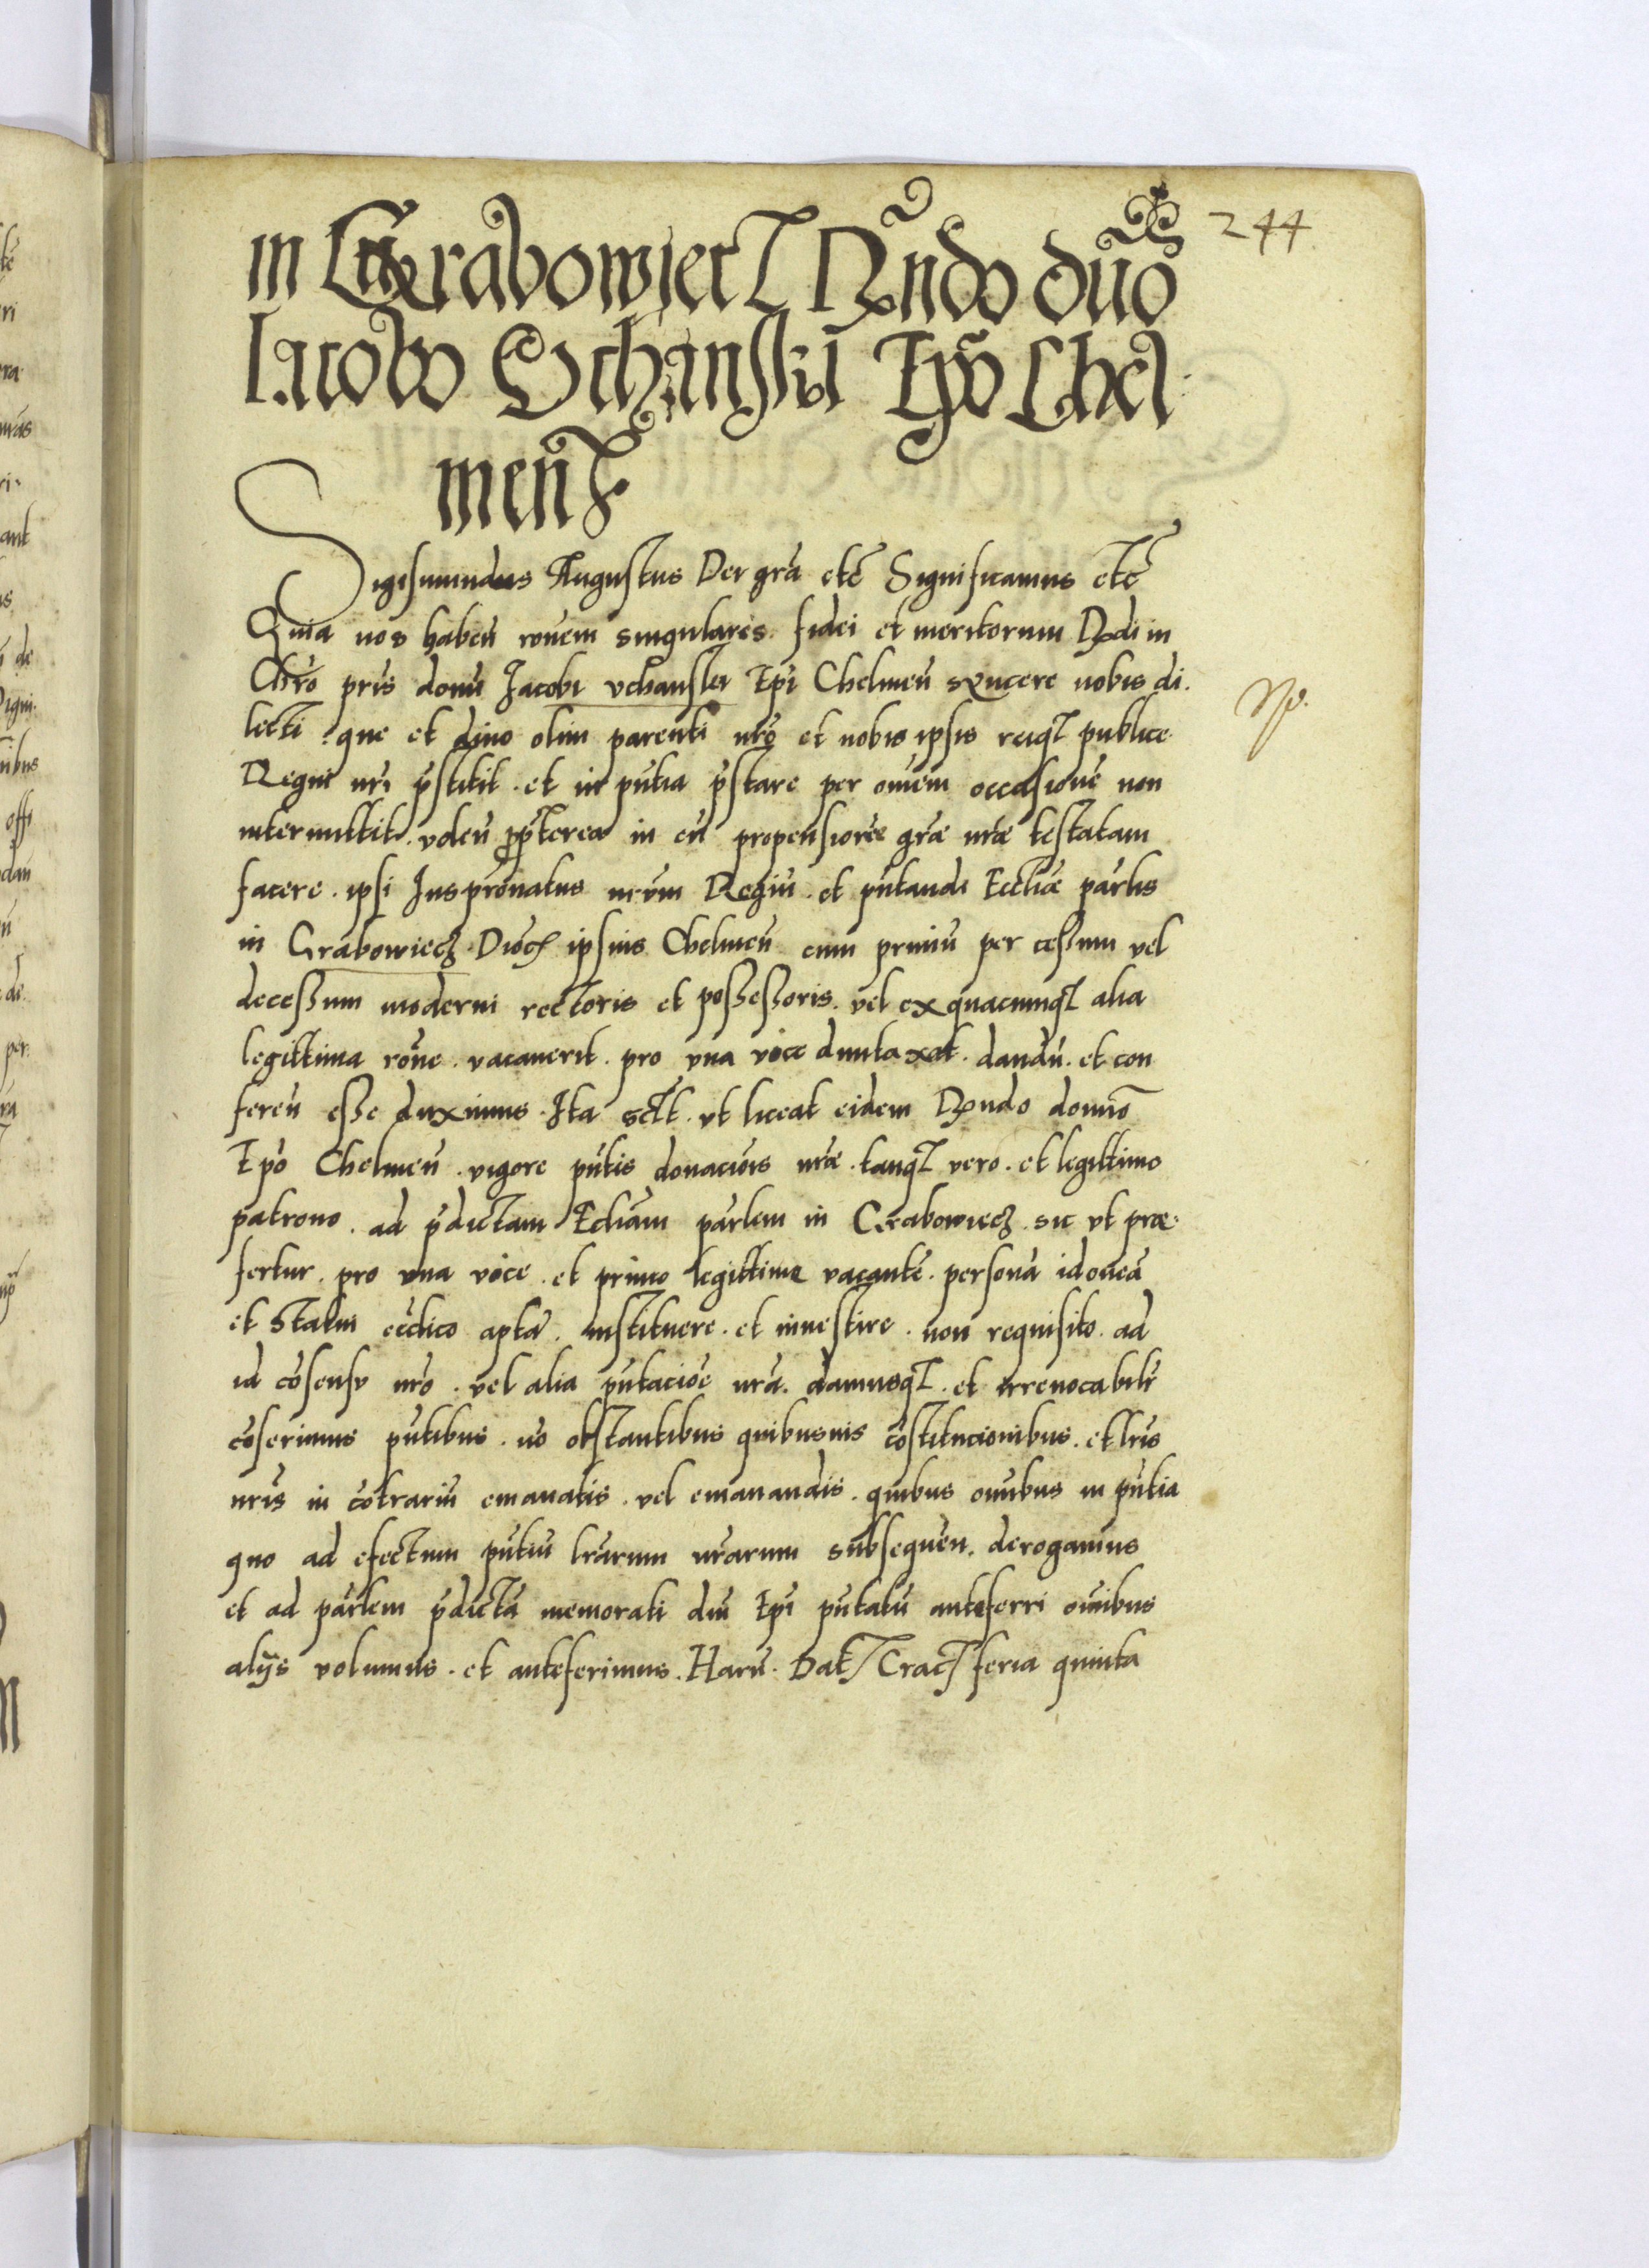 244
in Grabowiecz Rndo dno
Iacobo Vchanski Epo Chel
menÿ
Sigismundus Augustus Dei gra etc Significamus etc
Quia nos haben ronem singulares fidei et meritorum Rndi in
Chro pris domi Jacobi vchanski Epi Chelmen syncere nobis di
lecti que et divo olim parenti nro et nobis ipsis reiq publice
Regni nri pstitit. et in pntia pstare per omem occasione non
intermittit. volen ppterea in eu propensiore grae nrae testatam
facere. ipsi Juspronatus nrum Regiu. et pntandi Eccliae parlis
in Grabowiecz Dioc ipsius Chelmen cum primu per cessum vel
decessum moderni rectoris et possessoris. vel ex quacunq alia
legittima rone. vacaverit. pro vna voce duntaxat. dandu. et con
feren esse duximus. Ita sclt. vt liceat eidem Rndo domio
Epo Chelmen. vigore pntis donacois nrae. tanq vero. et legittimo
patrono. ad pdictam Ecliam parlem in Grabowiecz. sic vt prae
fertur. pro vna voce. et primo legittime vacante. persona idonea
et Statui ecclico apta. instituere. et investire. non requisito. ad
id cosensv nro. vel alia pntacioe nra. damusq. et irrevocabilr
coferimus pntibus. no obstantibus quibusvis costitucionibus. et lris
nris in cotrariu emanatis. vel emanandis. quibus omibus in pntia
quo ad efectum pntiu lrarum nrarum subsequen. derogamus
et ad parlem pdicta memorati dni Epi pntatu anteferri omibus
alijs volumus. et anteferimus. Haru. Dat Crac feria quinta